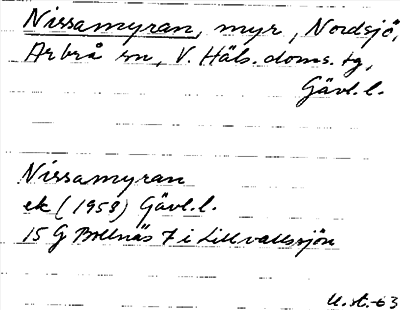 Nissamyran, myr, Nordsjö,
Arbrå sn, V. Häls. doms. tg,
Gävl.l.
Nissamyran
ek (1958) Gävl.l.
15 G Bollnäs 7 i Lillvallssjön
U.st.-63